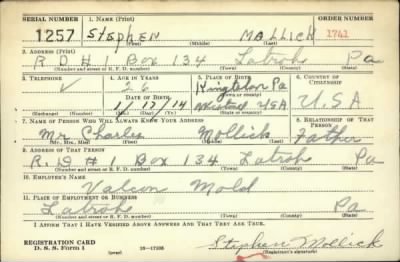 SERIAL NUMBER 1. NAME (Print) ORDER NUMBER
1257 STEPHEN MALLICK 1741
(First) (Middle) (Last)
2. ADDRESS (Print)
R D # 1 Box 134 Latrobe Pa
(Number and street or R. F. D. number) (Town) (County) (State)
3. TELEPHONE 4. AGE IN YEARS 5. PLACE OF BIRTH 6. COUNTRY OF CITIZENSHIP
26 Kingston Pa
DATE OF BIRTH
1/17/14 USA U.S.A
(Mo.) (Day) (Yr.) (State or country)
7. NAME OF PERSON WHO WILL ALWAYS KNOW YOUR ADDRESS 8. RELATIONSHIP OF THAT PERSON
Mr Charles Mollick Father
(Mr., Mrs., Miss) (First) (Middle) (Last)
9. ADDRESS OF THAT PERSON
R. D # 1 Box 134 Latrobe Pa
(Number and street or R. F. D. number) (Town) (County) (State)
10. EMPLOYER'S NAME
Vulcan Mold
11. PLACE OF EMPLOYMENT OR BUSINESS
Latrobe Pa
(Number and street or R. F. D. number) (Town) (County) (State)
I AFFIRM THAT I HAVE VERIFIED ABOVE ANSWERS AND THAT THEY ARE TRUE.
REGISTRATION CARD
D. S. S. Form 1 (over) Stephen Mollick
(Registrant's signature)